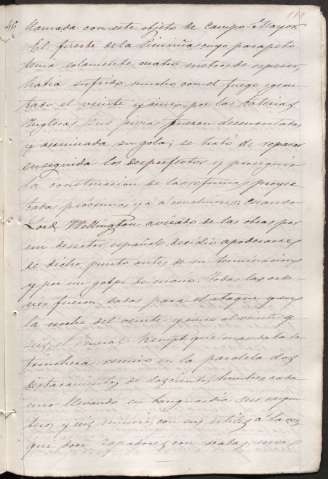 llamada con este objeto de Campo Mayor
El fuerte de la Picuriña cuyo parapeto
tenia solamente cuatro metros de espesor,
habia sufrido mucho con el fuego
el veinte y cinco por las baterias
Inglesas. Sus piezas fueron desmontadas
y arruinada su gola; se trató de reparar
enseguida los desperfectos y proseguir
la construccion de las reformas proyec-
tadas proximas ya á concluirse. Cuando
Lord Wellington avisado de las obras por
un desertor español decidió apoderarse
de dicho punto antes de su terminacion
y por un golpe de mano. Todas las orde-
nes fueron dadas para el ataque, y en
la noche del veinte y cinco al veinte y
seis el General Kempt que mandaba la
trinchera reunió en la paralela dos
destacamentos de doscientos hombres cada
uno llevando en vanguardia
y seis mineros con sus útiles á la vez
que doce zapadores con